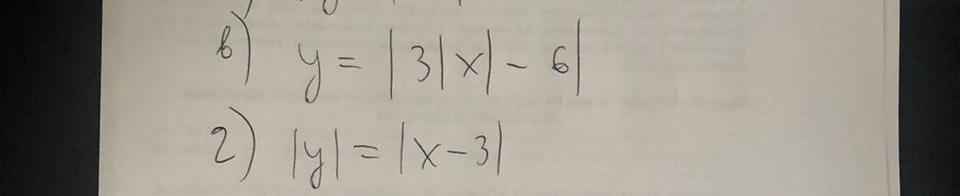 в) y = |3|x| - 6|
г) |y| = |x-3|